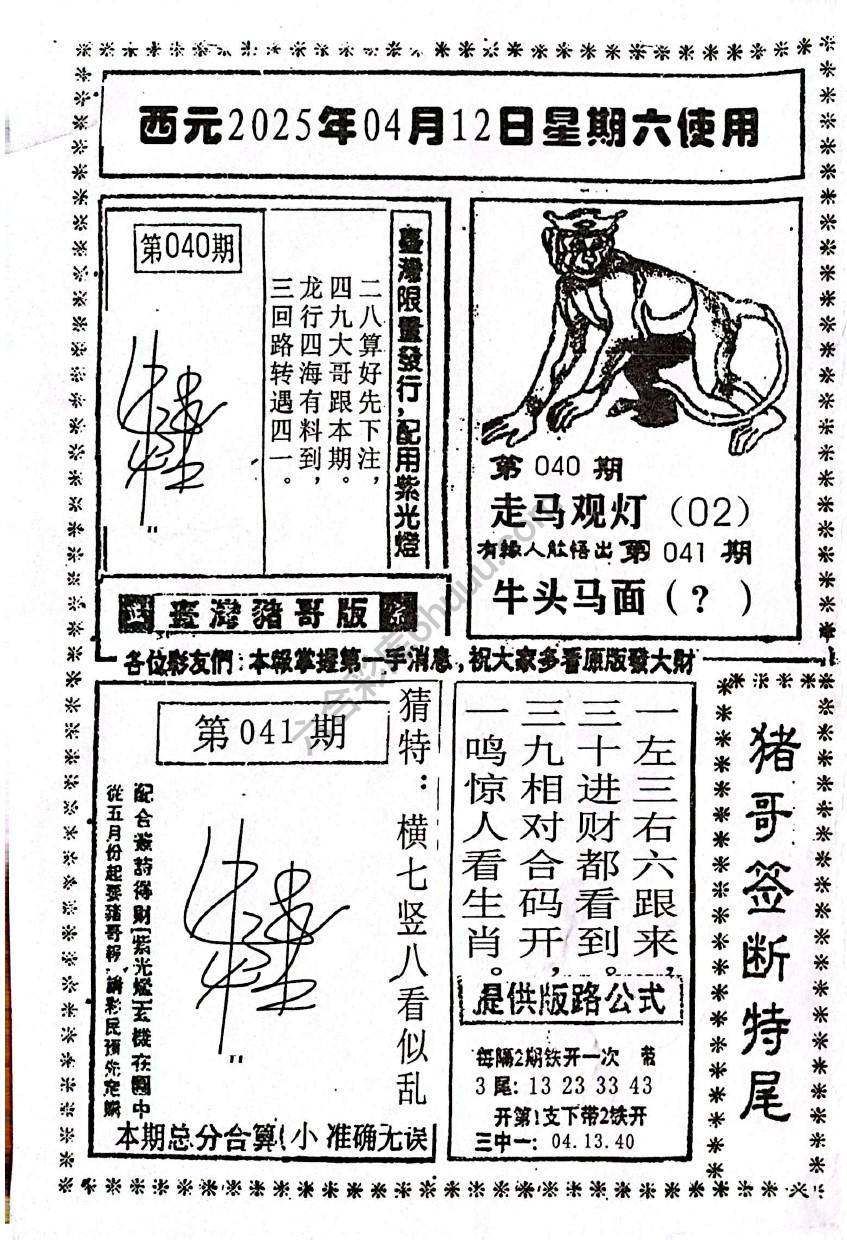 西元2025年04月12日星期六使用
第040期
臺灣限量發行,配用紫光燈
二八算好先下注，
四九大哥跟本期。
龙行四海有料到，
三回路转遇四一。
臺灣豬哥版
第 040 期
走马观灯（02）
有緣人能悟出 第 041 期
牛头马面（?）
各位彩友們:本報掌握第一手消息,祝大家多看原版發大財
第 041 期
猜特：横七竖八看似乱
配合簽詩得財(紫光燈)玄機在圖中
從五月份起要豬哥報,請彩民預先定購
本期总分合算(小 准确无误
一左三右六跟来，
三十进财都看到。
三九相对合码开，
一鸣惊人看生肖。
提供版路公式
每隔2期铁开一次 带
3 尾: 13 23 33 43
开第1支下带2铁开
三中一: 04.13.40
猪哥签断特尾